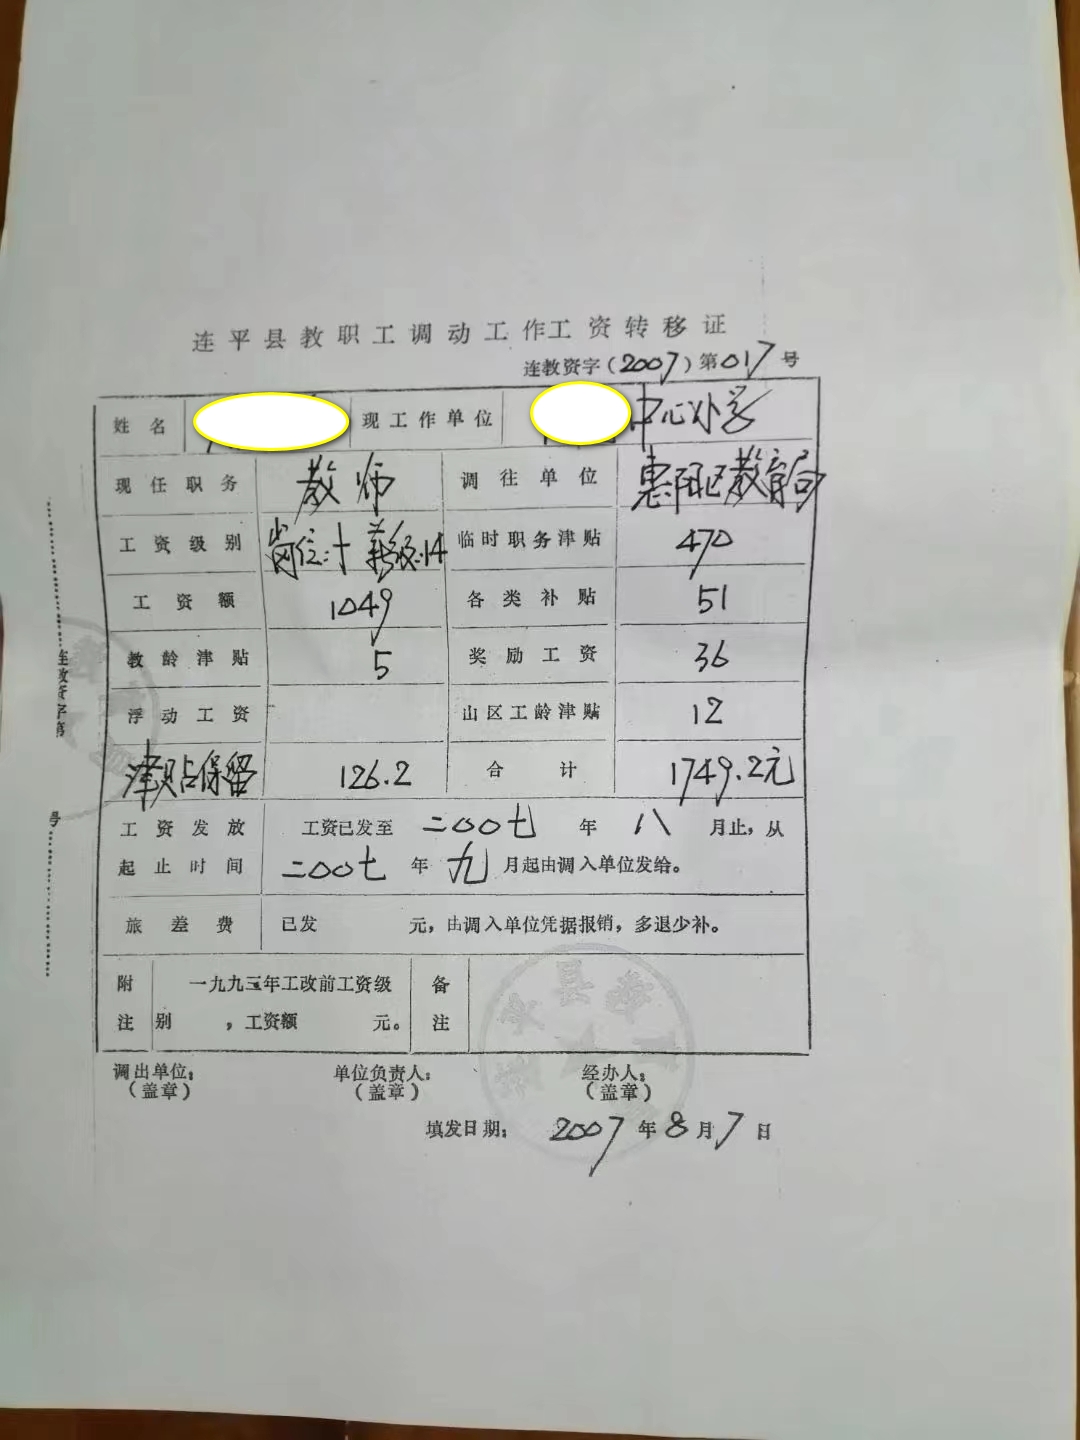 连平县教职工调动工作工资转移证
连教资字(2007)第017号
姓名 现工作单位 中心小学
现任职务 教师 调往单位 惠阳区教育局
工资级别 岗位:十 薪级:14 临时职务津贴 470
工资额 1049 各类补贴 51
教龄津贴 5 奖励工资 36
浮动工资 山区工龄津贴 12
津贴保留 126.2 合计 1749.2元
工资发放 工资已发至 二00七 年 八 月止,从
起止时间 二00七 年 九 月起由调入单位发给。
旅差费 已发 元,由调入单位凭据报销,多退少补。
附 一九九三年工改前工资级 备
注 别 ,工资额 元。 注
调出单位: 单位负责人: 经办人:
(盖章) (盖章) (盖章)
填发日期: 2007年8月7日
连教资字第
号
平县教